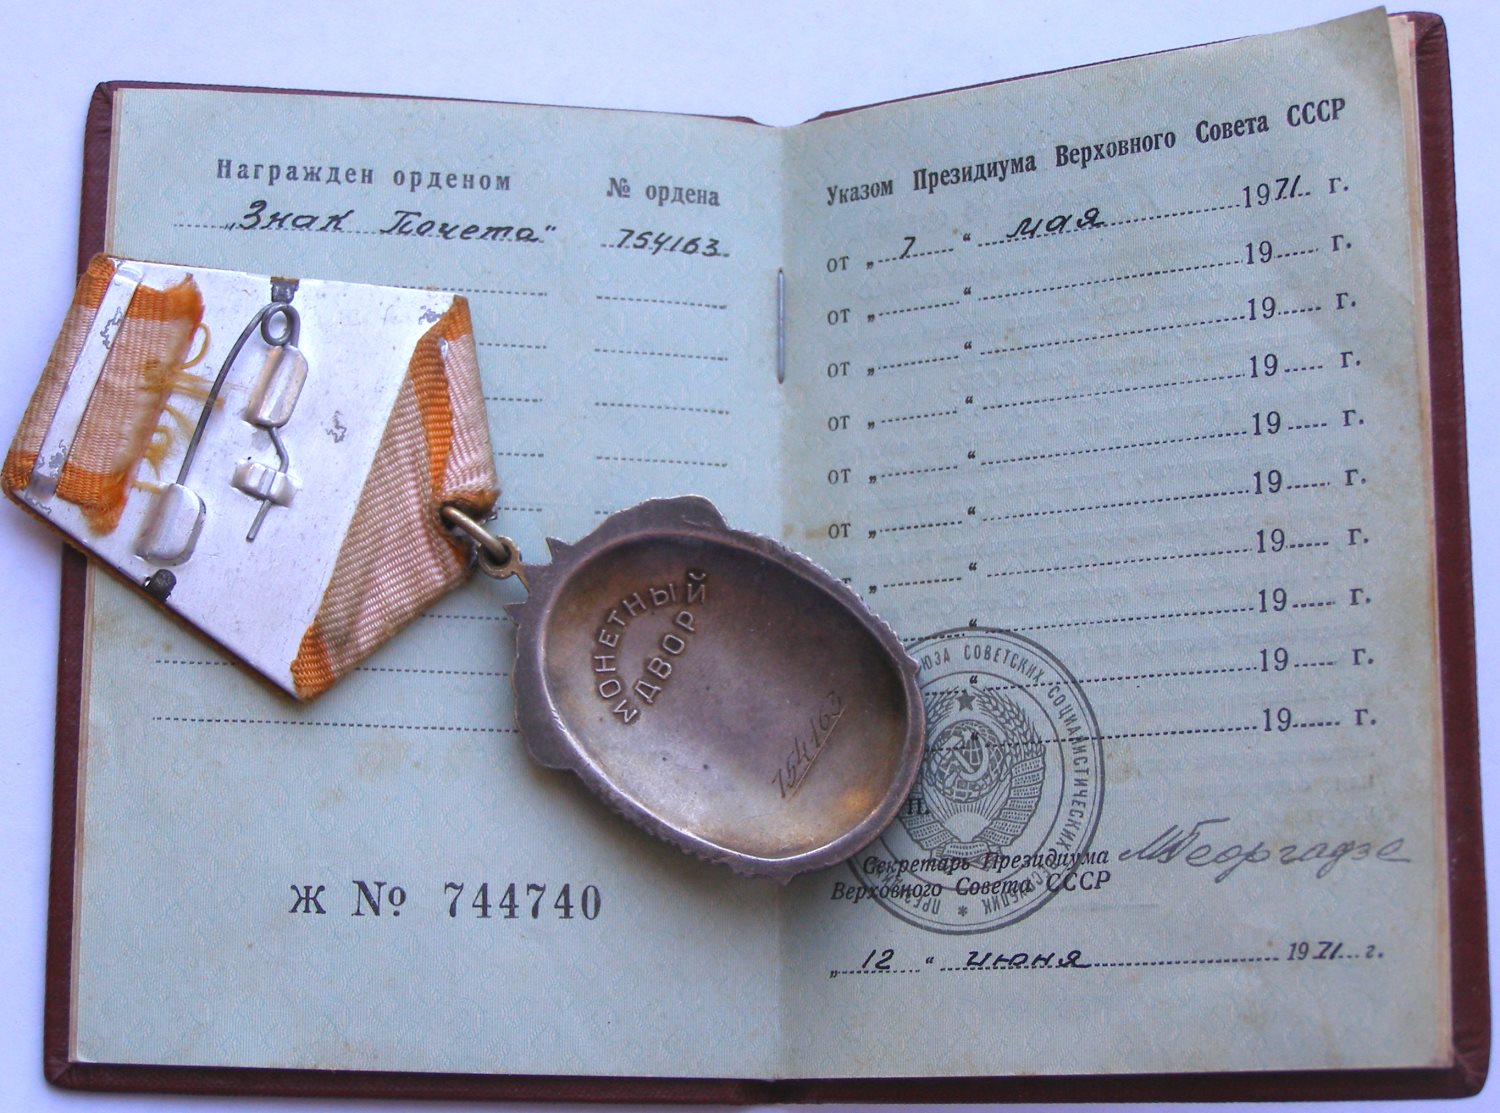 Награжден орденом № ордена
„Знак Почета“ 754163
Ж № 744740
МОНЕТНЫЙ
ДВОР
754163
Указом Президиума Верховного Совета СССР
от „ 7 “ мая 1971 г.
от „ “ 19 г.
от „ “ 19 г.
от „ “ 19 г.
от „ “ 19 г.
от „ “ 19 г.
„ “ 19 г.
“ 19 г.
“ 19 г.
“ 19 г.
СОВЕТСКИХ СОЦИАЛИСТИЧЕСКИХ
Секретарь Президиума
Верховного Совета СССР
МГеоргадзе
„ 12 “ июня 1971 г.